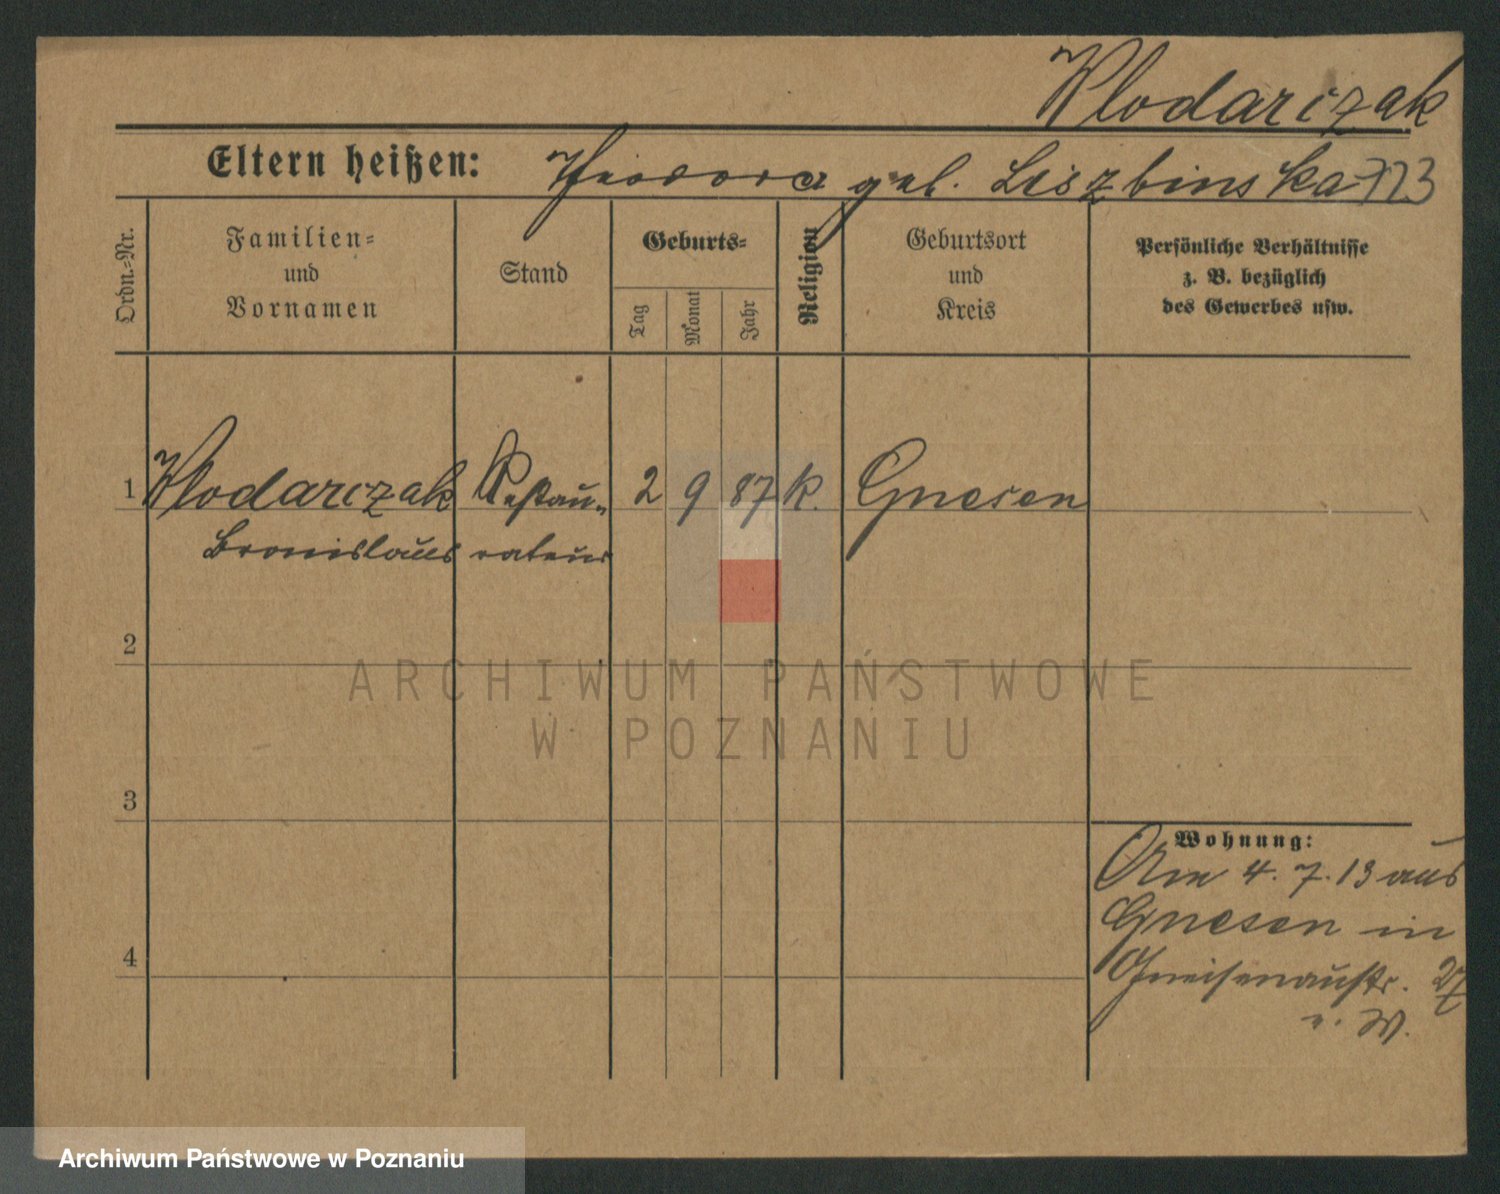 Wlodarczak
Eltern heißen: Theodora geb. Liszbinska 723
Ordn.-Nr.
Familien-
und
Vornamen
Stand
Geburts-
Tag
Monat
Jahr
Religion
Geburtsort
und
Kreis
Persönliche Verhältnisse
z. B. bezüglich
des Gewerbes usw.
1 Wlodarczak Restau- 2 9 87 k. Gnesen
Bronislaus rateur
2
ARCHIWUM PAŃSTWOWE
W POZNANIU
3
Wohnung:
Am 4. 7. 13 aus
Gnesen in
4
Gneisenaustr. 27
v. W.
Archiwum Państwowe w Poznaniu